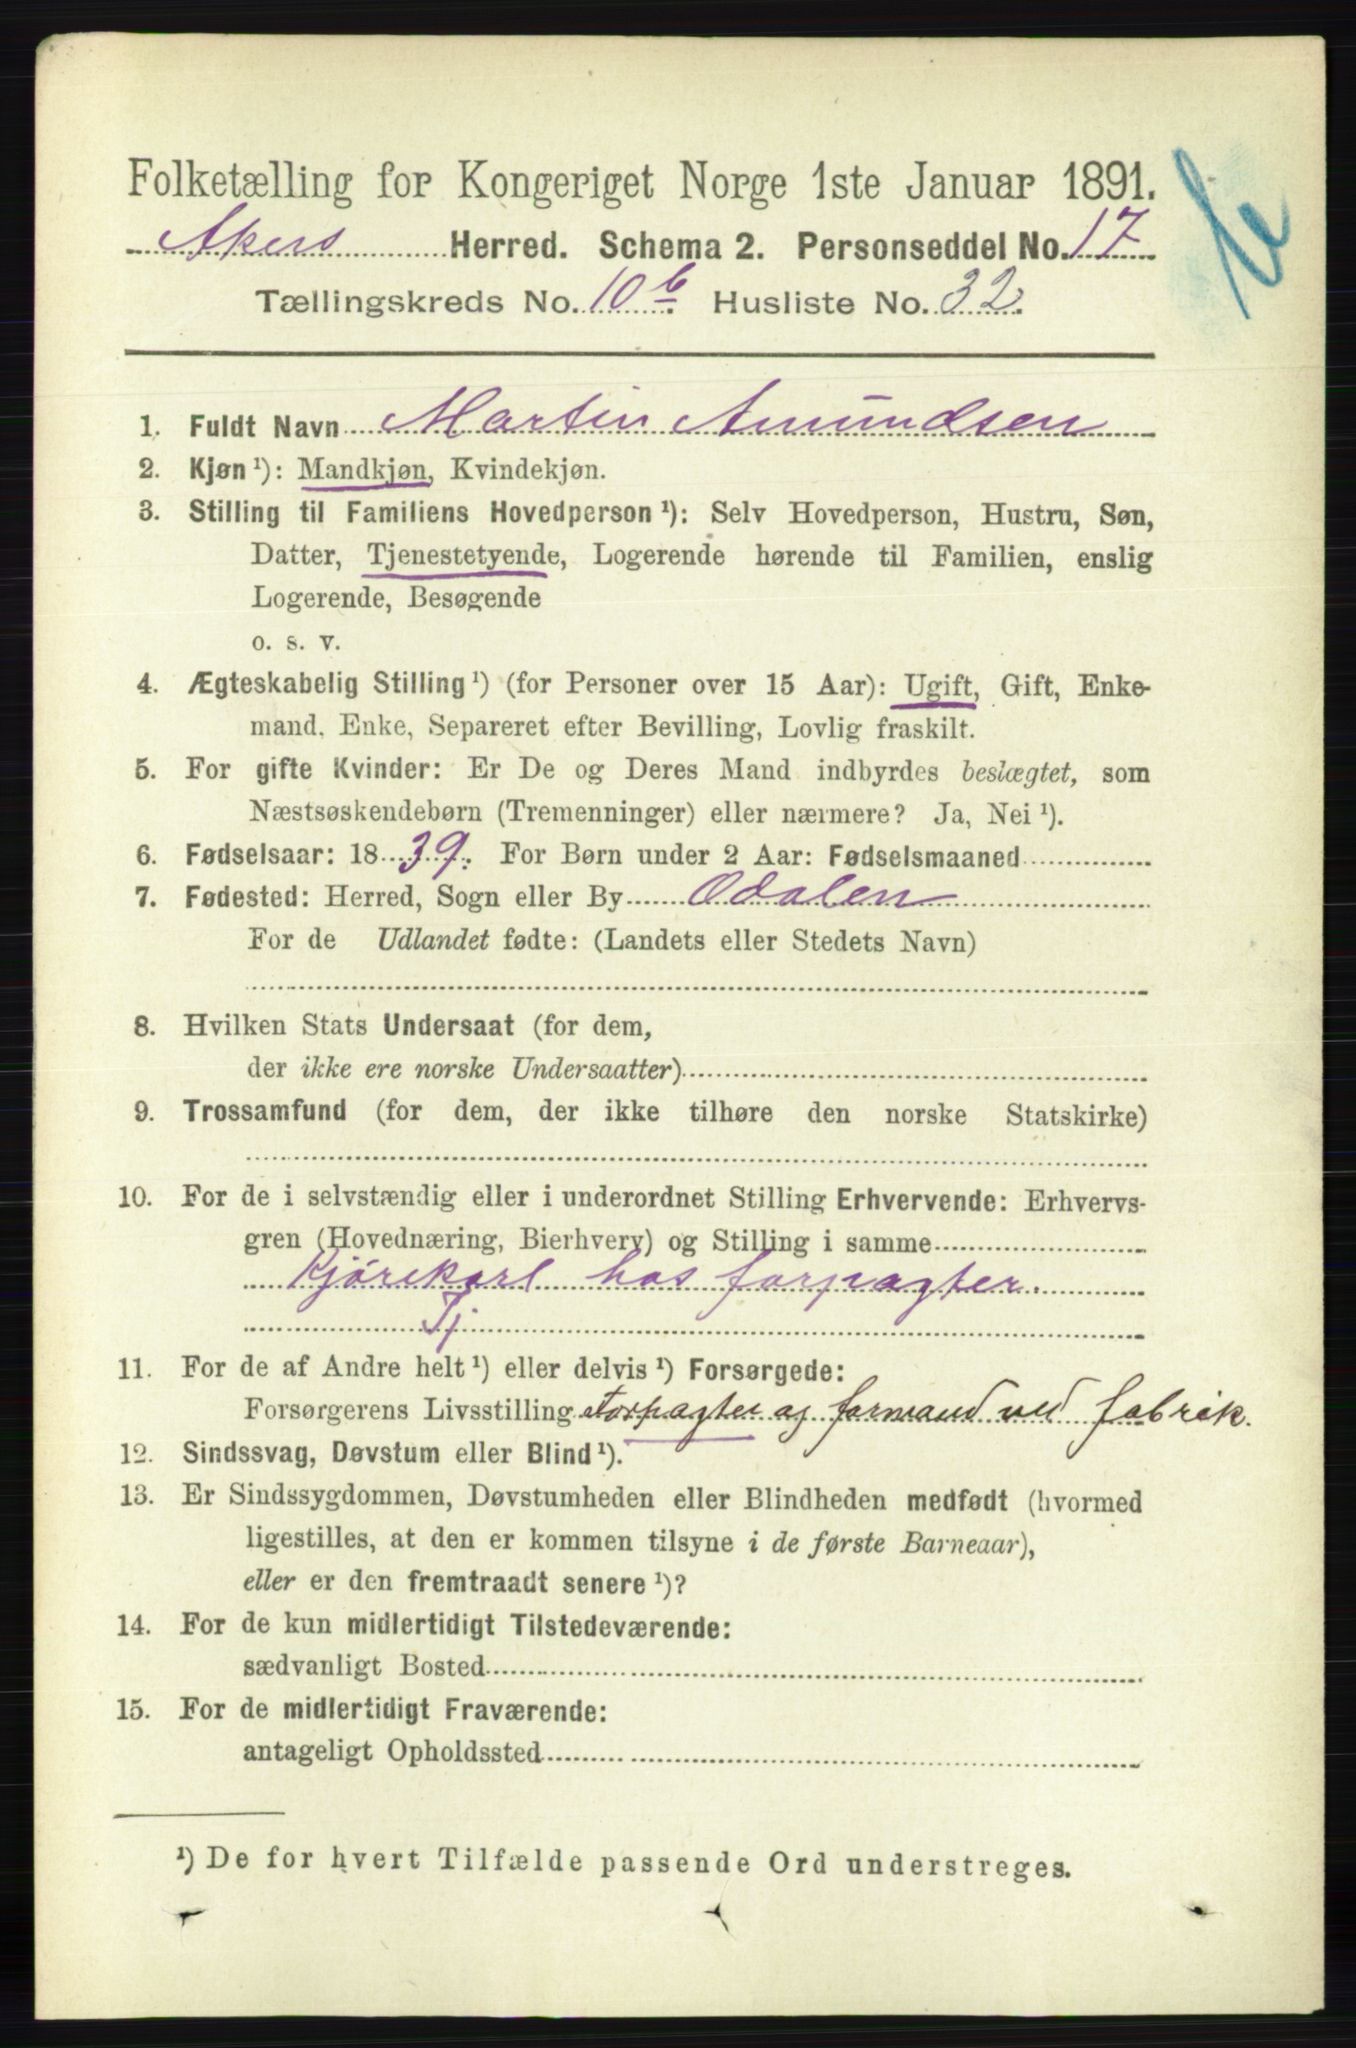 Folketælling for Kongeriget Norge 1ste Januar 1891.
Akers Herred. Schema 2. Personseddel No. 17
Tællingskreds No. 10 b. Husliste No. 32.
1. Fuldt Navn Martin Amundsen
2. Kjøn ¹): Mandkjøn, Kvindekjøn.
3. Stilling til Familiens Hovedperson ¹): Selv Hovedperson, Hustru, Søn,
Datter, Tjenestetyende, Logerende hørende til Familien, enslig
Logerende, Besøgende
o. s. v.
4. Ægteskabelig Stilling ¹) (for Personer over 15 Aar): Ugift, Gift, Enke-
mand, Enke, Separeret efter Bevilling, Lovlig fraskilt.
5. For gifte Kvinder: Er De og Deres Mand indbyrdes beslægtet, som
Næstsøskendebørn (Tremenninger) eller nærmere? Ja, Nei ¹).
6. Fødselsaar: 18 39. For Børn under 2 Aar: Fødselsmaaned
7. Fødested: Herred, Sogn eller By Odalen
For de Udlandet fødte: (Landets eller Stedets Navn)
8. Hvilken Stats Undersaat (for dem,
der ikke ere norske Undersaatter)
9. Trossamfund (for dem, der ikke tilhøre den norske Statskirke)
10. For de i selvstændig eller i underordnet Stilling Erhvervende: Erhvervs-
gren (Hovednæring, Bierhverv) og Stilling i samme
Kjørekarl hos forpagter.
Tj
11. For de af Andre helt ¹) eller delvis ¹) Forsørgede:
Forsørgerens Livsstilling Forpagter og formand ved fabrik.
12. Sindssvag, Døvstum eller Blind ¹).
13. Er Sindssygdommen, Døvstumheden eller Blindheden medfødt (hvormed
ligestilles, at den er kommen tilsyne i de første Barneaar),
eller er den fremtraadt senere ¹)?
14. For de kun midlertidigt Tilstedeværende:
sædvanligt Bosted
15. For de midlertidigt Fraværende:
antageligt Opholdssted
¹) De for hvert Tilfælde passende Ord understreges.